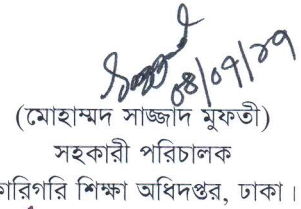 ০৪/০৭/২১
(মোহাম্মদ সাজ্জাদ মুফতী)
সহকারী পরিচালক
কারিগরি শিক্ষা অধিদপ্তর, ঢাকা।